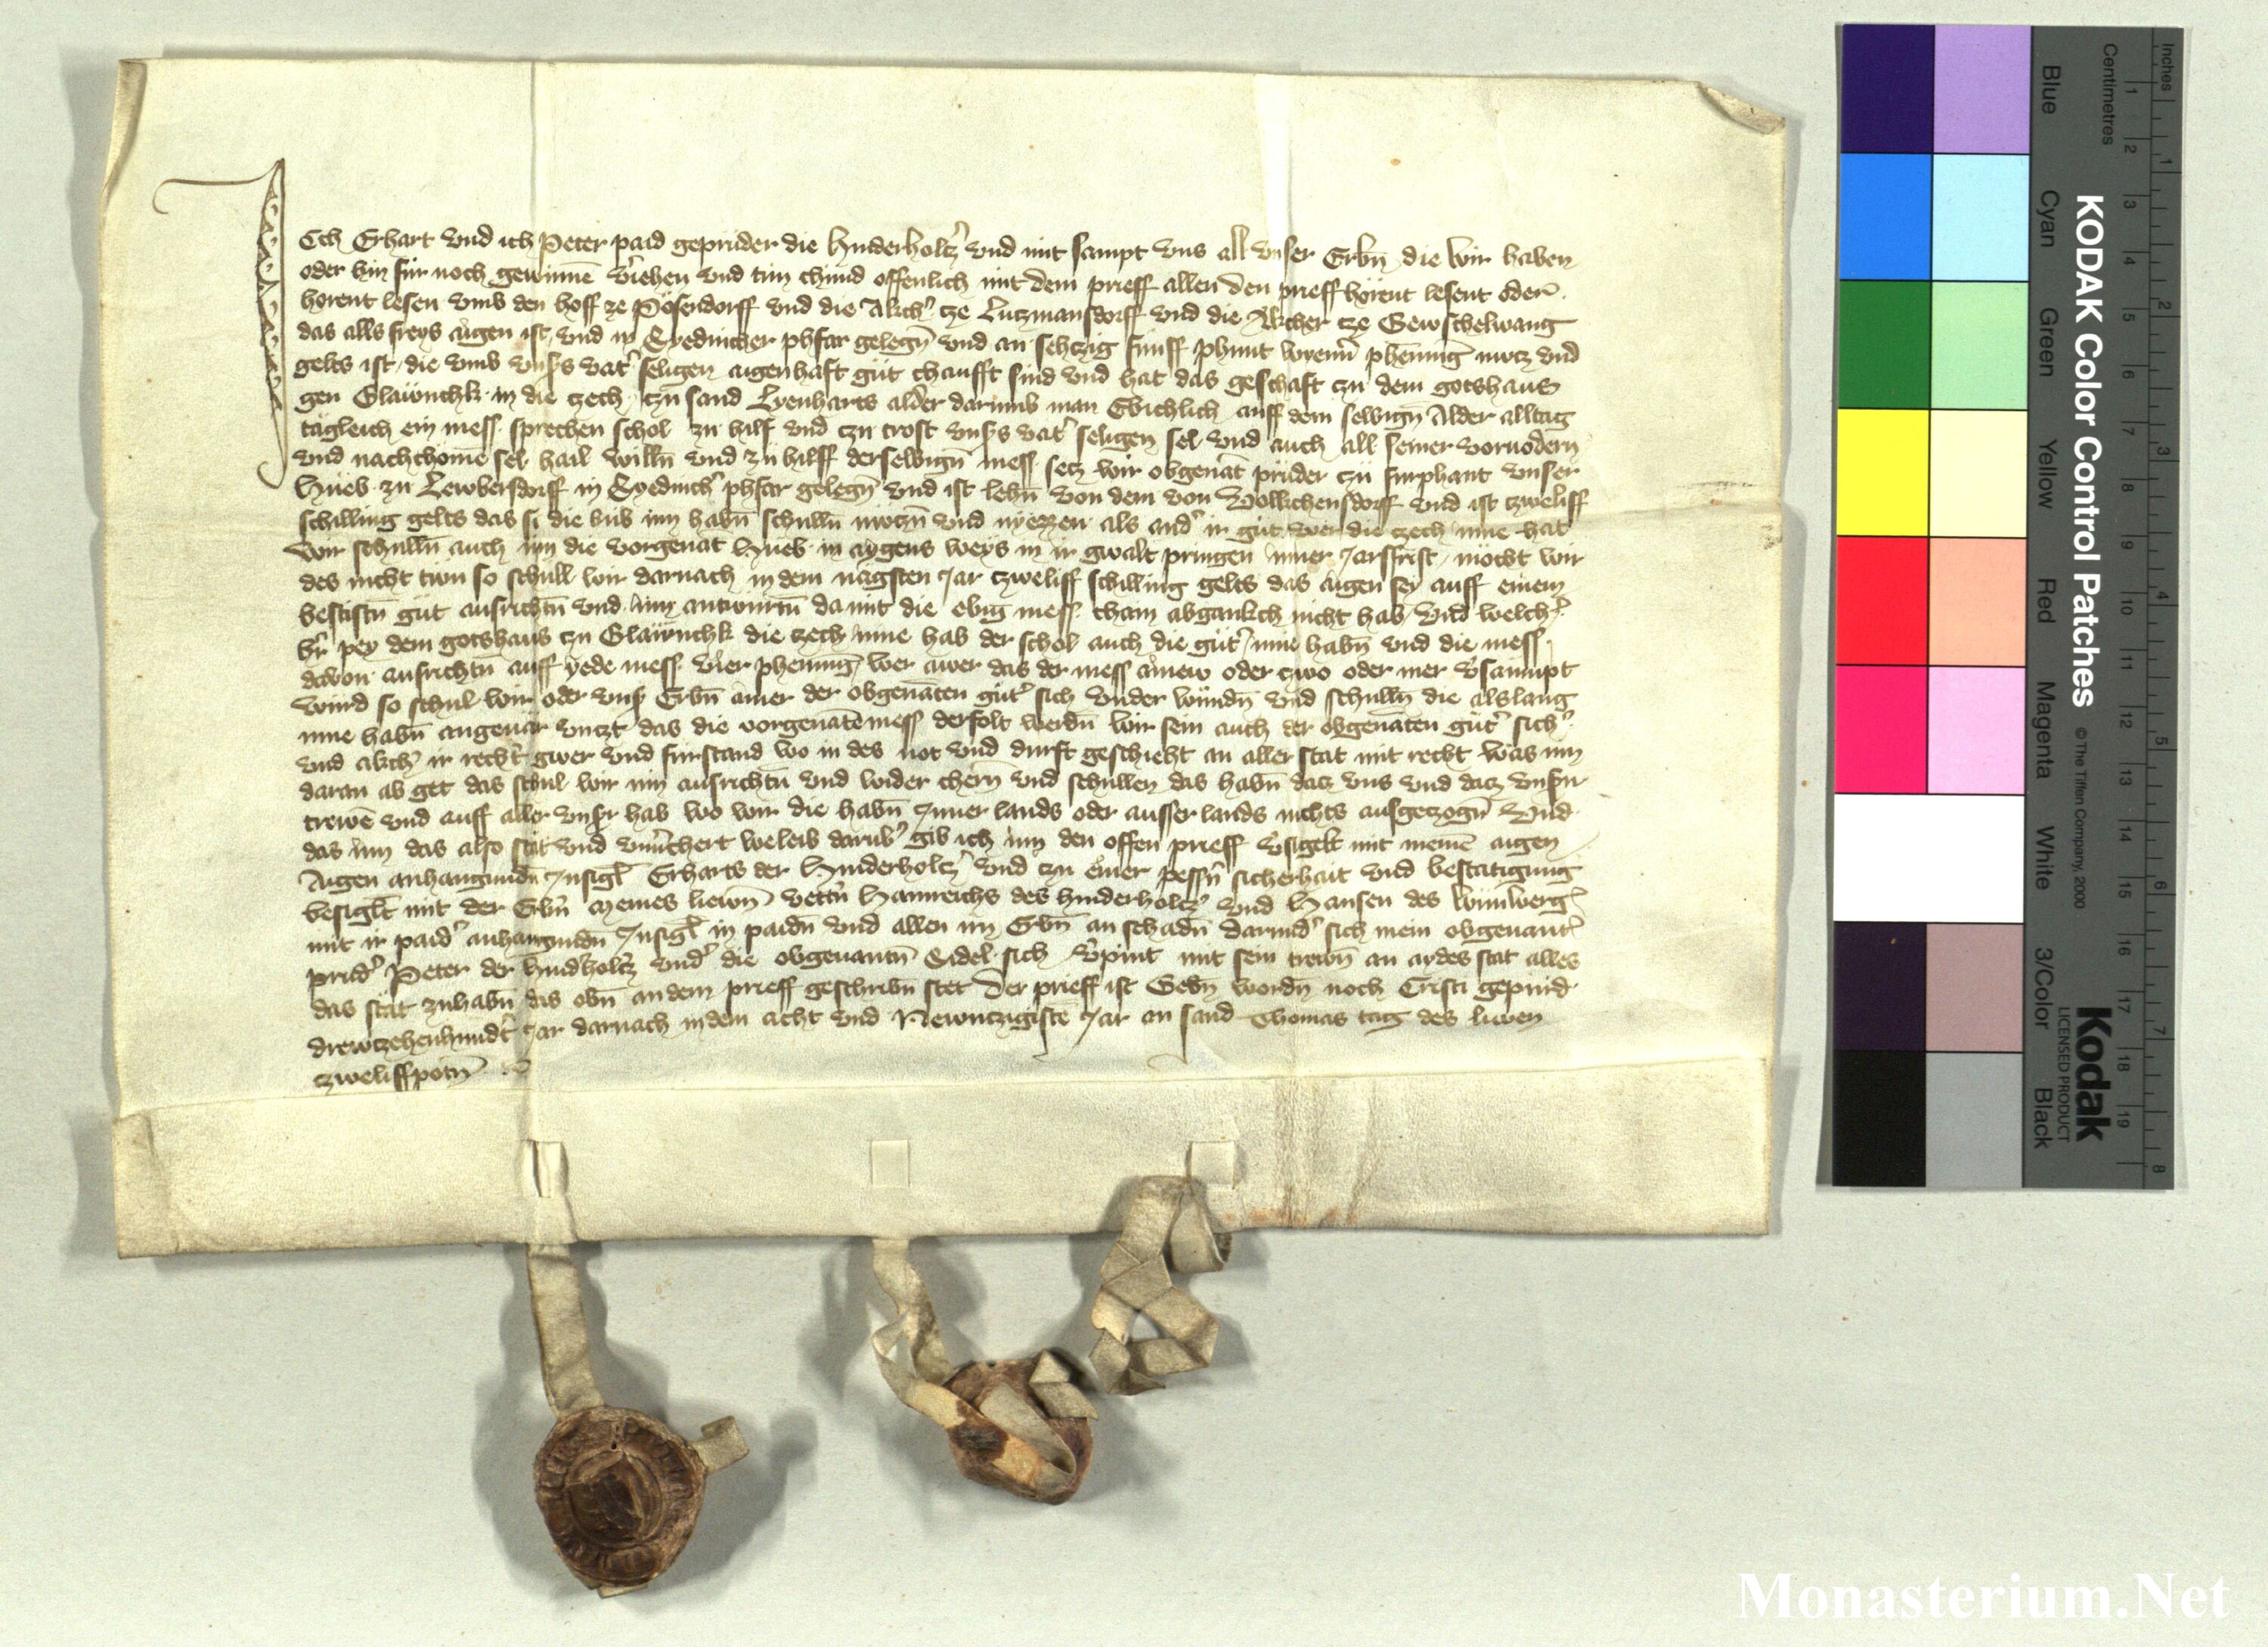 Ich Erhart vnd ich Peter paid geprüder die Hinderholcz̄ vnd mit sampt vns all vnser Erbn̄ die wir haben
oder hin für noch gewinnē v̄iehen vnd tun chund offenlich mit dem prieff allen den prieff hörent lesent oder
horent lesen vmb den hoff ze Pösendorff vnd die Akch̄ cze Lutzmansdorff vnd die Akcher cze Gewschelwang
das alls freys aigen ist vnd in phfar gelegn̄ vnd an sehczig fünff phunt wienn̄ phenninḡ nucz vnd
gelts ist die vmb vnsers vat̄ seligen aigenhaft gut chaufft sind vnd hat das geschaft czu dem gotshaus
gen Gläwnchk in die czech czu sand Lyenharts alder darumb man Ebichlich auff dem selbign̄ Alder alltag
tägleich ein mess sprechen schol zu hilf vnd czu trost vnsers vat̄ seligen sel vnd auch all seiner voruodern
vnd nachchomē sel hail willn̄ vnd zu hilff derselbign̄ mess secz wir obgenāt prüder czu furphant vnser
Hueb zu Lewbersdorff in phfar gelegn̄ vnd ist lehn̄ von dem von Vollichensdorff vnd ist czweliff
schilling gelts das si die hub inn habn̄ schulln̄ nuczn̄ vnd nyezzen als and̄ ir gut wer die czech inne hat
Wir schulln̄ auch im die vorgenāt Hueb in aygens weys in ir gwalt pringen inner Jarsfrist möcht wir
des nicht tun so schull wir darnach in dem nägsten Jar czweliff schilling gelts das aigen sey auff einem
bestiftn̄ güt ausrichtn̄ vnd im antwurtn̄ damit die ebig mess cham abgankch nicht hab vnd welch̄
h̄r pey dem gotshaus czu Gläwnchk die czech inne hab der schol auch die güt̄ inne habn̄ vnd die mess
davon ausrichtn̄ auff yede mess vier phenninḡ wer awer das der mess ainew oder czwo oder mer v̄saumpt
wurd so schul wir oder vns̄ Erbn̄ ainer der obgenāten güt̄ sich vnder windn̄ vnd schulln̄ die alslang
inne habn̄ angeuär vnczt das die vorgenātē mess derfolt werdn̄ wir sein auch der obgenāten güt̄ sich̄
vnd akch̄ ir recht̄ gwer vnd fürstand wo in des not vnd durft geschieht an aller stat mit recht was im
daran ab get das schul wir im ausrichtn̄ vnd wider chern̄ vnd schullen das habn̄ dacz vns vnd dacz vnsern
trewē vnd auff aller vnsr̄ hab wo wir die habn̄ Inner lands oder ausser lands nichts ausgeczogn̄ Vnd
das im das also stät vnd vnu̇chert weleib darub̄ gib ich im den offen prieff v̄sigelt mit meinē aigen
Aigen anhangundn̄ Insigl̄ Erharts der Hinderholcz̄ vnd czu einer pessrn̄ sicherhait vnd bestatigung
besiglt mit der Erbn̄ meines liewn̄ vettn̄ Hainreichs des hinderholcz̄ vnd Hansen des
mit ir paid̄ anhangundn̄ Insigl̄ in paidn̄ vnd allen irn Erbn̄ an schadn̄ darund̄ sich mein obgenant̄
prud̄ Peter der hind̄holcz̄ vnd̄ die obgenantn̄ Sidel sich v̄pint mit sein trewn̄ an aydes stat alles
das stät zuhabn̄ das obn̄ an dem prieff geschribn̄ stet Der prieff ist Gebn̄ wordn̄ noch Cristi gepurd
drewczehenhundt̄ Jar darnach in dem acht vnd Newnczigistē Jar an sand Thomas tag des liewen
czweliffpotn̄
KODAK Color Control Patches
© The Tiffen Company, 2000
Kodak
LICENSED PRODUCT
Inches
Centimetres
Blue
Cyan
Green
Yellow
Red
Magenta
White
3/Color
Black
1 2 3 4 5 6 7 8
1 2 3 4 5 6 7 8 9 10 11 12 13 14 15 16 17 18 19
Monasterium.Net